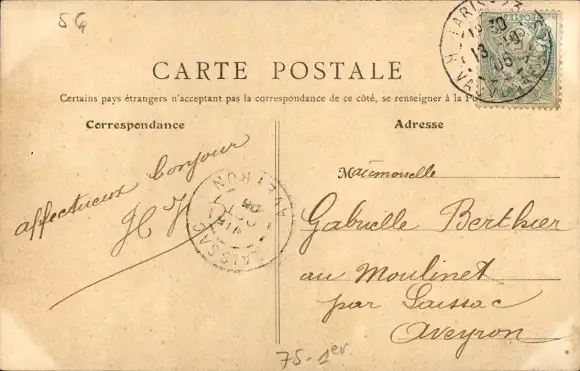 56
CARTE POSTALE
Certains pays étrangers n'acceptant pas la correspondance de ce côté, se renseigner à la
Correspondance
Adresse
affectueux bonjour
Mademoiselle
Gabrielle Berthier
au Moulinet
par Laissac
Aveyron
LAISSAC
AVEYRON
PARIS
13
05
75-1er